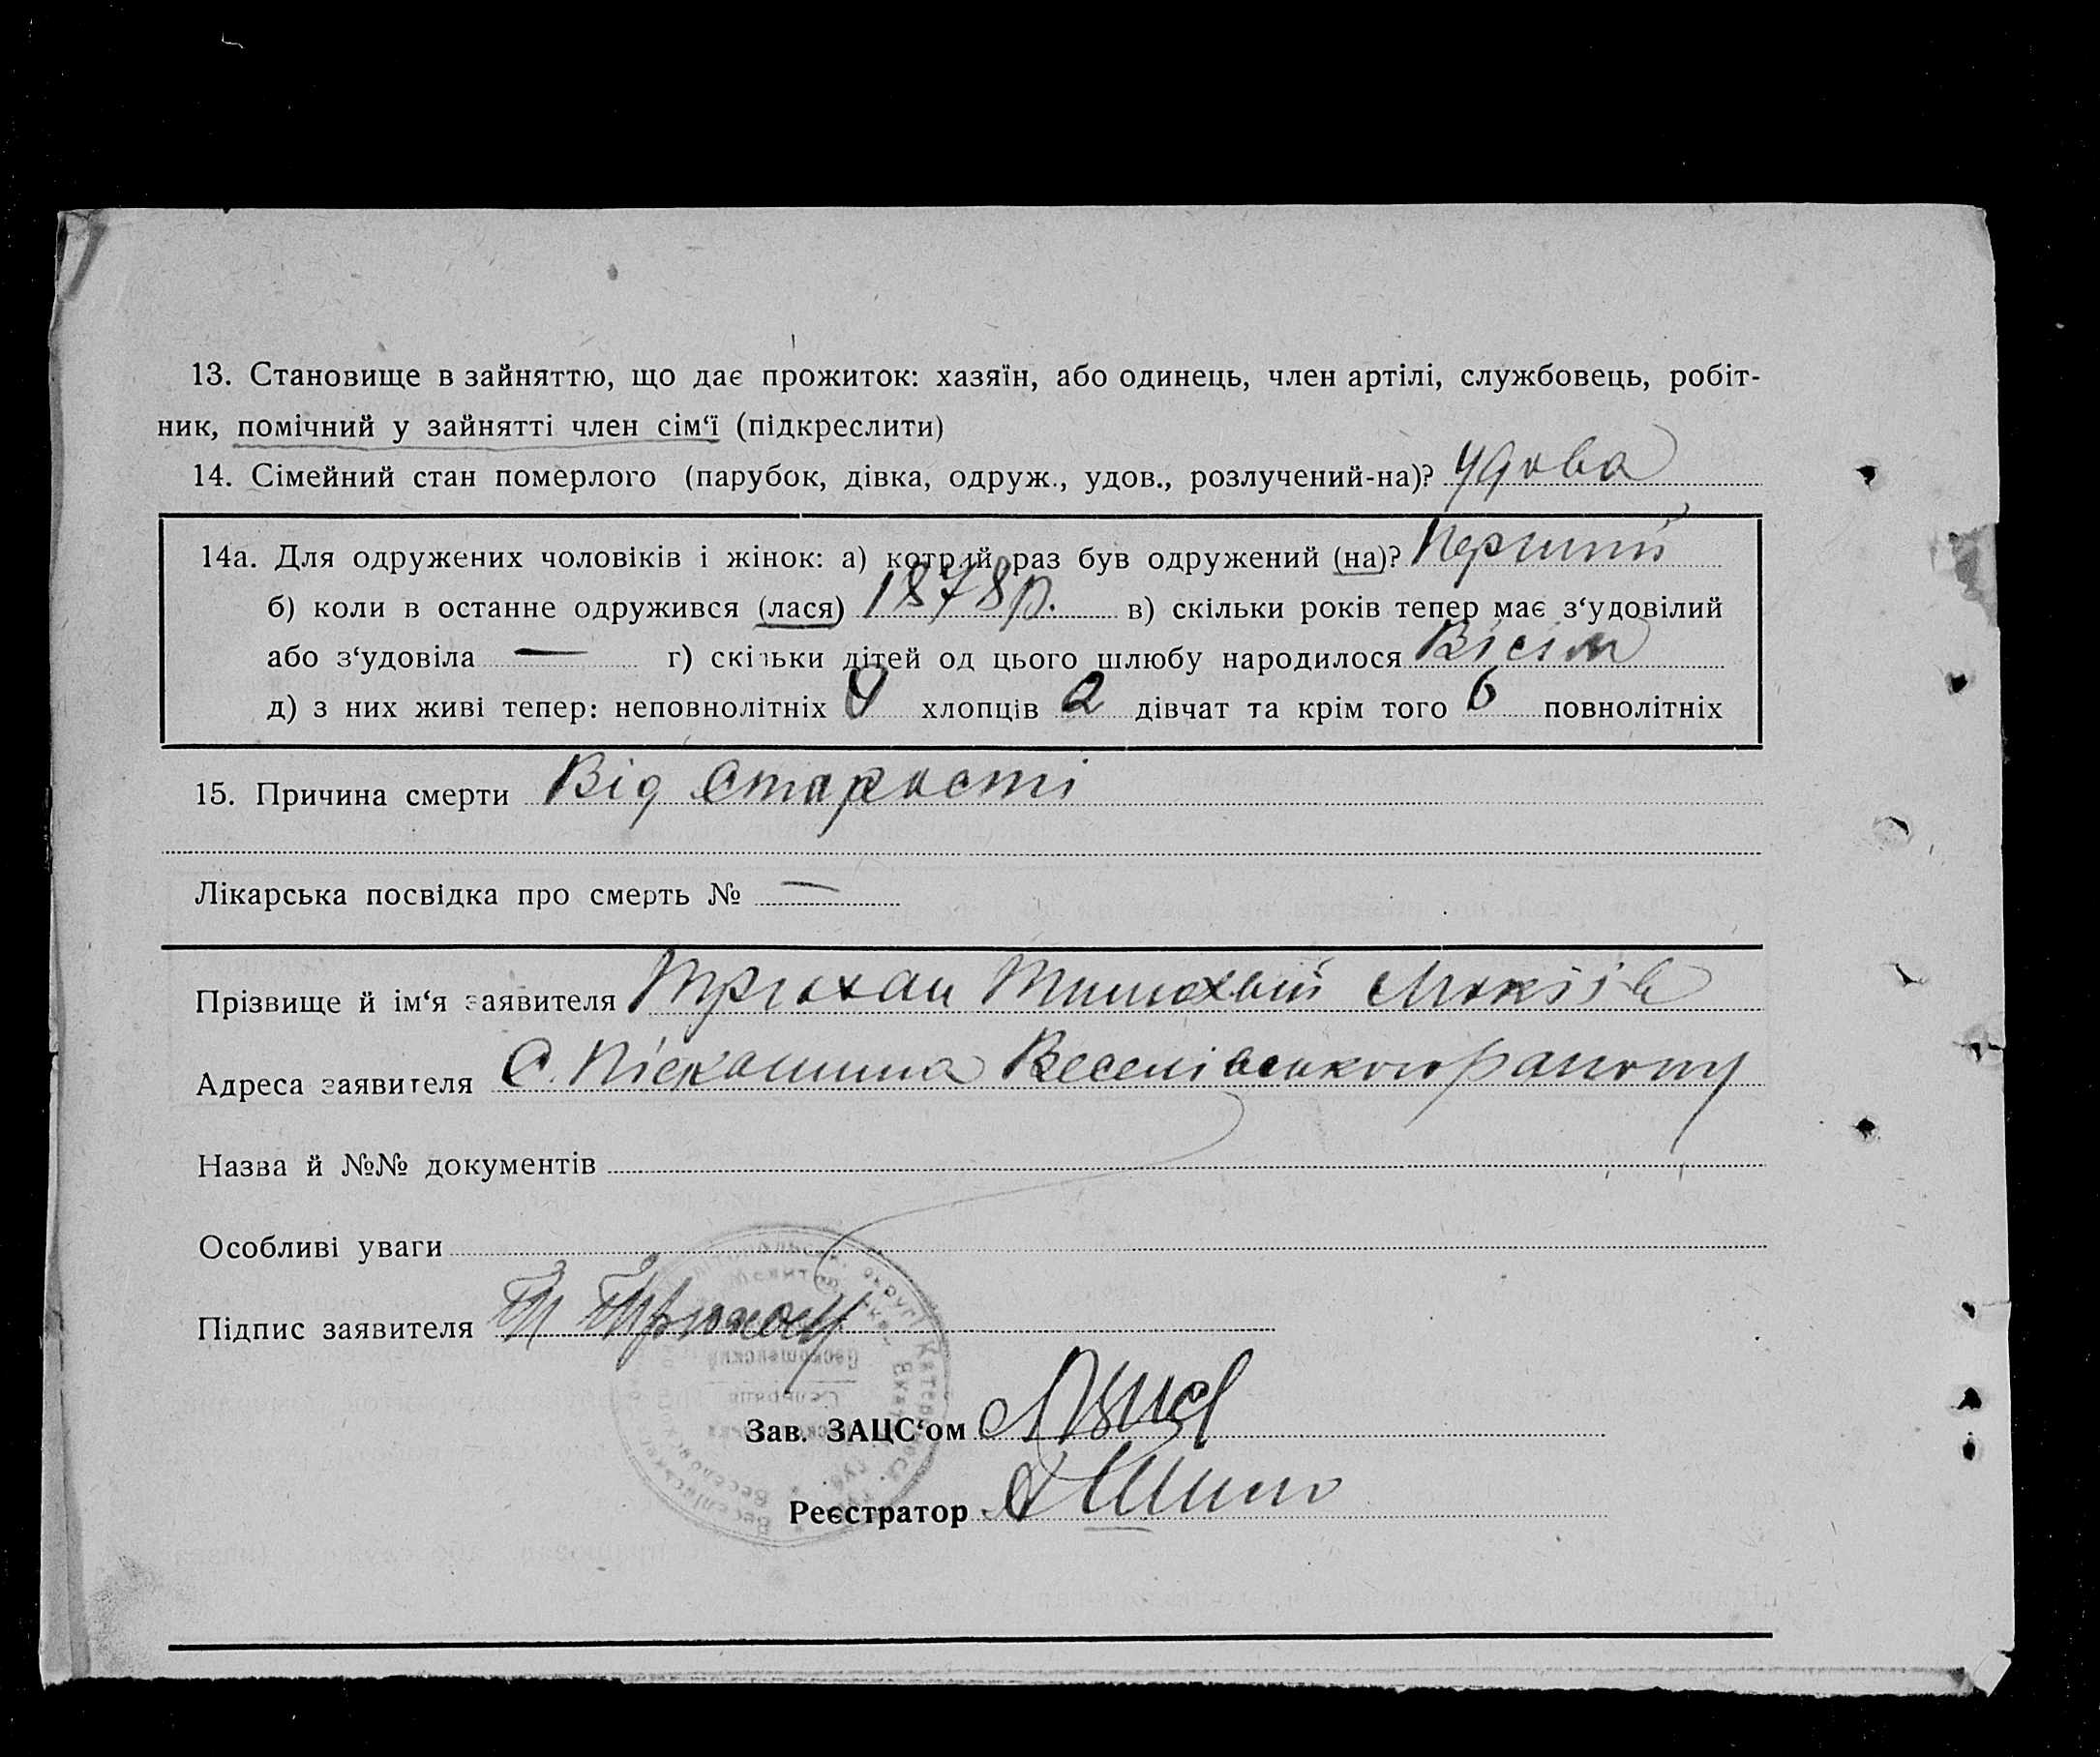 13. Становище в зайняттю, що дає прожиток: хазяїн, або одинець, член артілі, службовець, робіт-
ник, помічний у зайнятті член сім‘ї (підкреслити)
14. Сімейний стан померлого (парубок, дівка, одруж., удов., розлучений-на)? удова
14а. Для одружених чоловіків і жінок: а) котрий раз був одружений (на)? Перший
б) коли в останне одружився (лася) 1878 р. в) скільки років тепер має з‘удовілий
або з‘удовіла — г) скільки дітей од цього шлюбу народилося Вісім
д) з них живі тепер: неповнолітніх 4 хлопців 2 дівчат та крім того 6 повнолітніх
15. Причина смерти Від Старости
Лікарська посвідка про смерть № —
Прізвище й ім‘я заявителя Трюхан Тимохвій Мокіїв
Адреса заявителя С. Піскошина Веселівського району
Назва й №№ документів
Особливі уваги
Підпис заявителя Трюхан
Зав. ЗАЦС‘ом
Реєстратор